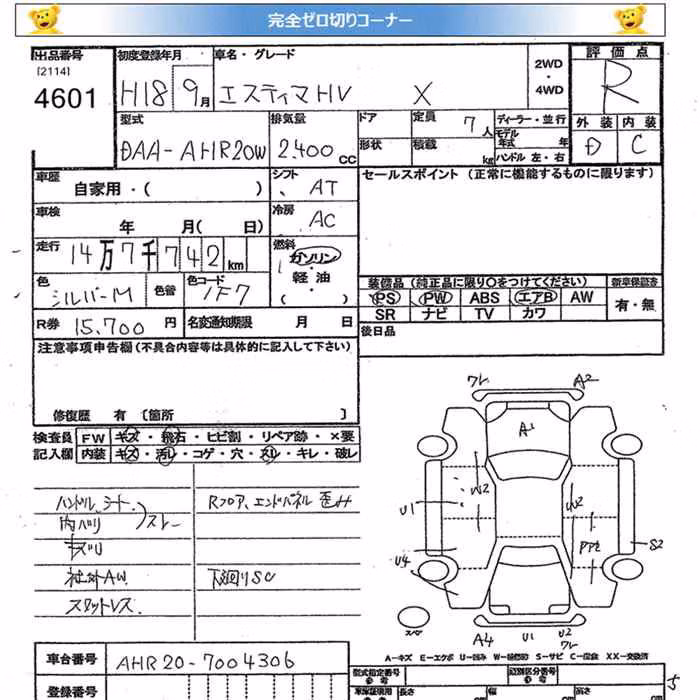 完全ゼロ切りコーナー
出品番号 初度登録年月 車名・グレード 2WD ・ 4WD 評価点
[2114]
4601 H18 9月 エスティマHV X R
型式 排気量 ドア 定員 7人 ディーラー・並行 外装 内装
モデル年式 年
DAA-AHR20W 2,400CC 形状 積載 kg ハンドル 左・右 D C
車歴 自家用・( ) シフト AT セールスポイント (正常に機能するものに限ります)
車検 年 月( 日) 冷房 AC
走行 14万7千742km 燃料 ガソリン・軽油・( )
色 シルバーM 色替 色コード 1F7
装備品 (純正品に限り○をつけてください) 新車保証書
PS PW ABS エアB AW 有・無
SR ナビ TV カワ
R券 15,700円 名変通知期限 月 日 後日品
注意事項申告欄(不具合内容等は具体的に記入して下さい)
修復歴 有 [箇所 ]
検査員 FW キズ・飛石・ヒビ割・リペア跡・×要
記入欄 内装 キズ・汚レ・コゲ・穴・スレ・キレ・破レ
ハンドル、シート、 Rフロア、エンドパネル歪み
内バリ スレー
キズリ
社外AW 下廻りSC
スタットレス.
ワレ A2
A1
U1 U2 U2
PP2 S2
U4
スペア A4 U1 U2 ワレ
A-キズ E-エクボ U-凹み W-補修跡 S-サビ C-腐食 XX-交換済
車台番号 AHR20-7004306 型式指定番号 参考 類別区分番号 参考
登録番号 長さ cm 幅 cm 高さ cm